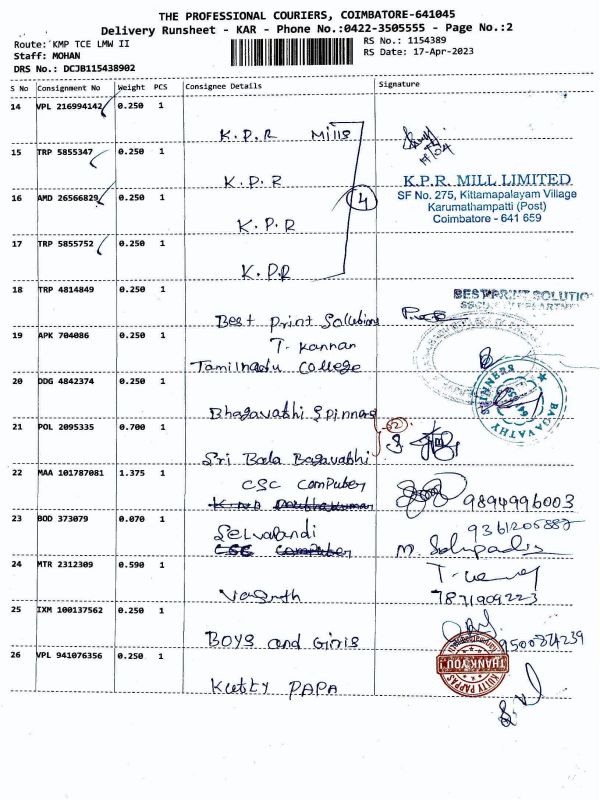 THE PROFESSIONAL COURIERS, COIMBATORE-641045
Delivery Runsheet - KAR - Phone No.:0422-3505555 - Page No.:2
Route: KMP TCE LMW II
RS No.: 1154389
Staff: MOHAN
RS Date: 17-Apr-2023
DRS No.: DCJB115438902
S No Consignment No Weight PCS Consignee Details Signature
14 VPL 216994142 0.250 1
K.P.R Mills
15 TRP 5855347 0.250 1
K.P.R
K.P.R. MILL LIMITED
16 AMD 26566829 0.250 1
4
SF No. 275, Kittamapalayam Village
Karumathampatti (Post)
Coimbatore - 641 659
K.P.R
17 TRP 5855752 0.250 1
K.P.R
18 TRP 4814849 0.250 1
BEST PRINT SOLUTIO
Best Print Sollutions
19 APK 704086 0.250 1
T. Kannan
Tamilnadu College
20 DDG 4842374 0.250 1
SPINNERS
BAGAVATHY
Bhagavathi Spinnars
21 POL 2095335 0.700 1
Sri Bala Bagavathi
22 MAA 101787081 1.375 1
CSC Computer
9894996003
23 BOD 373079 0.070 1
Selvapandi
CSC Computer
24 MTR 2312309 0.590 1
Vasanth
7871909223
25 IXM 100137562 0.250 1
Boys and Girls
9500874239
26 VPL 941076356 0.250 1
THANK YOU!
KUTTY PAPPAS
Kutty PAPA